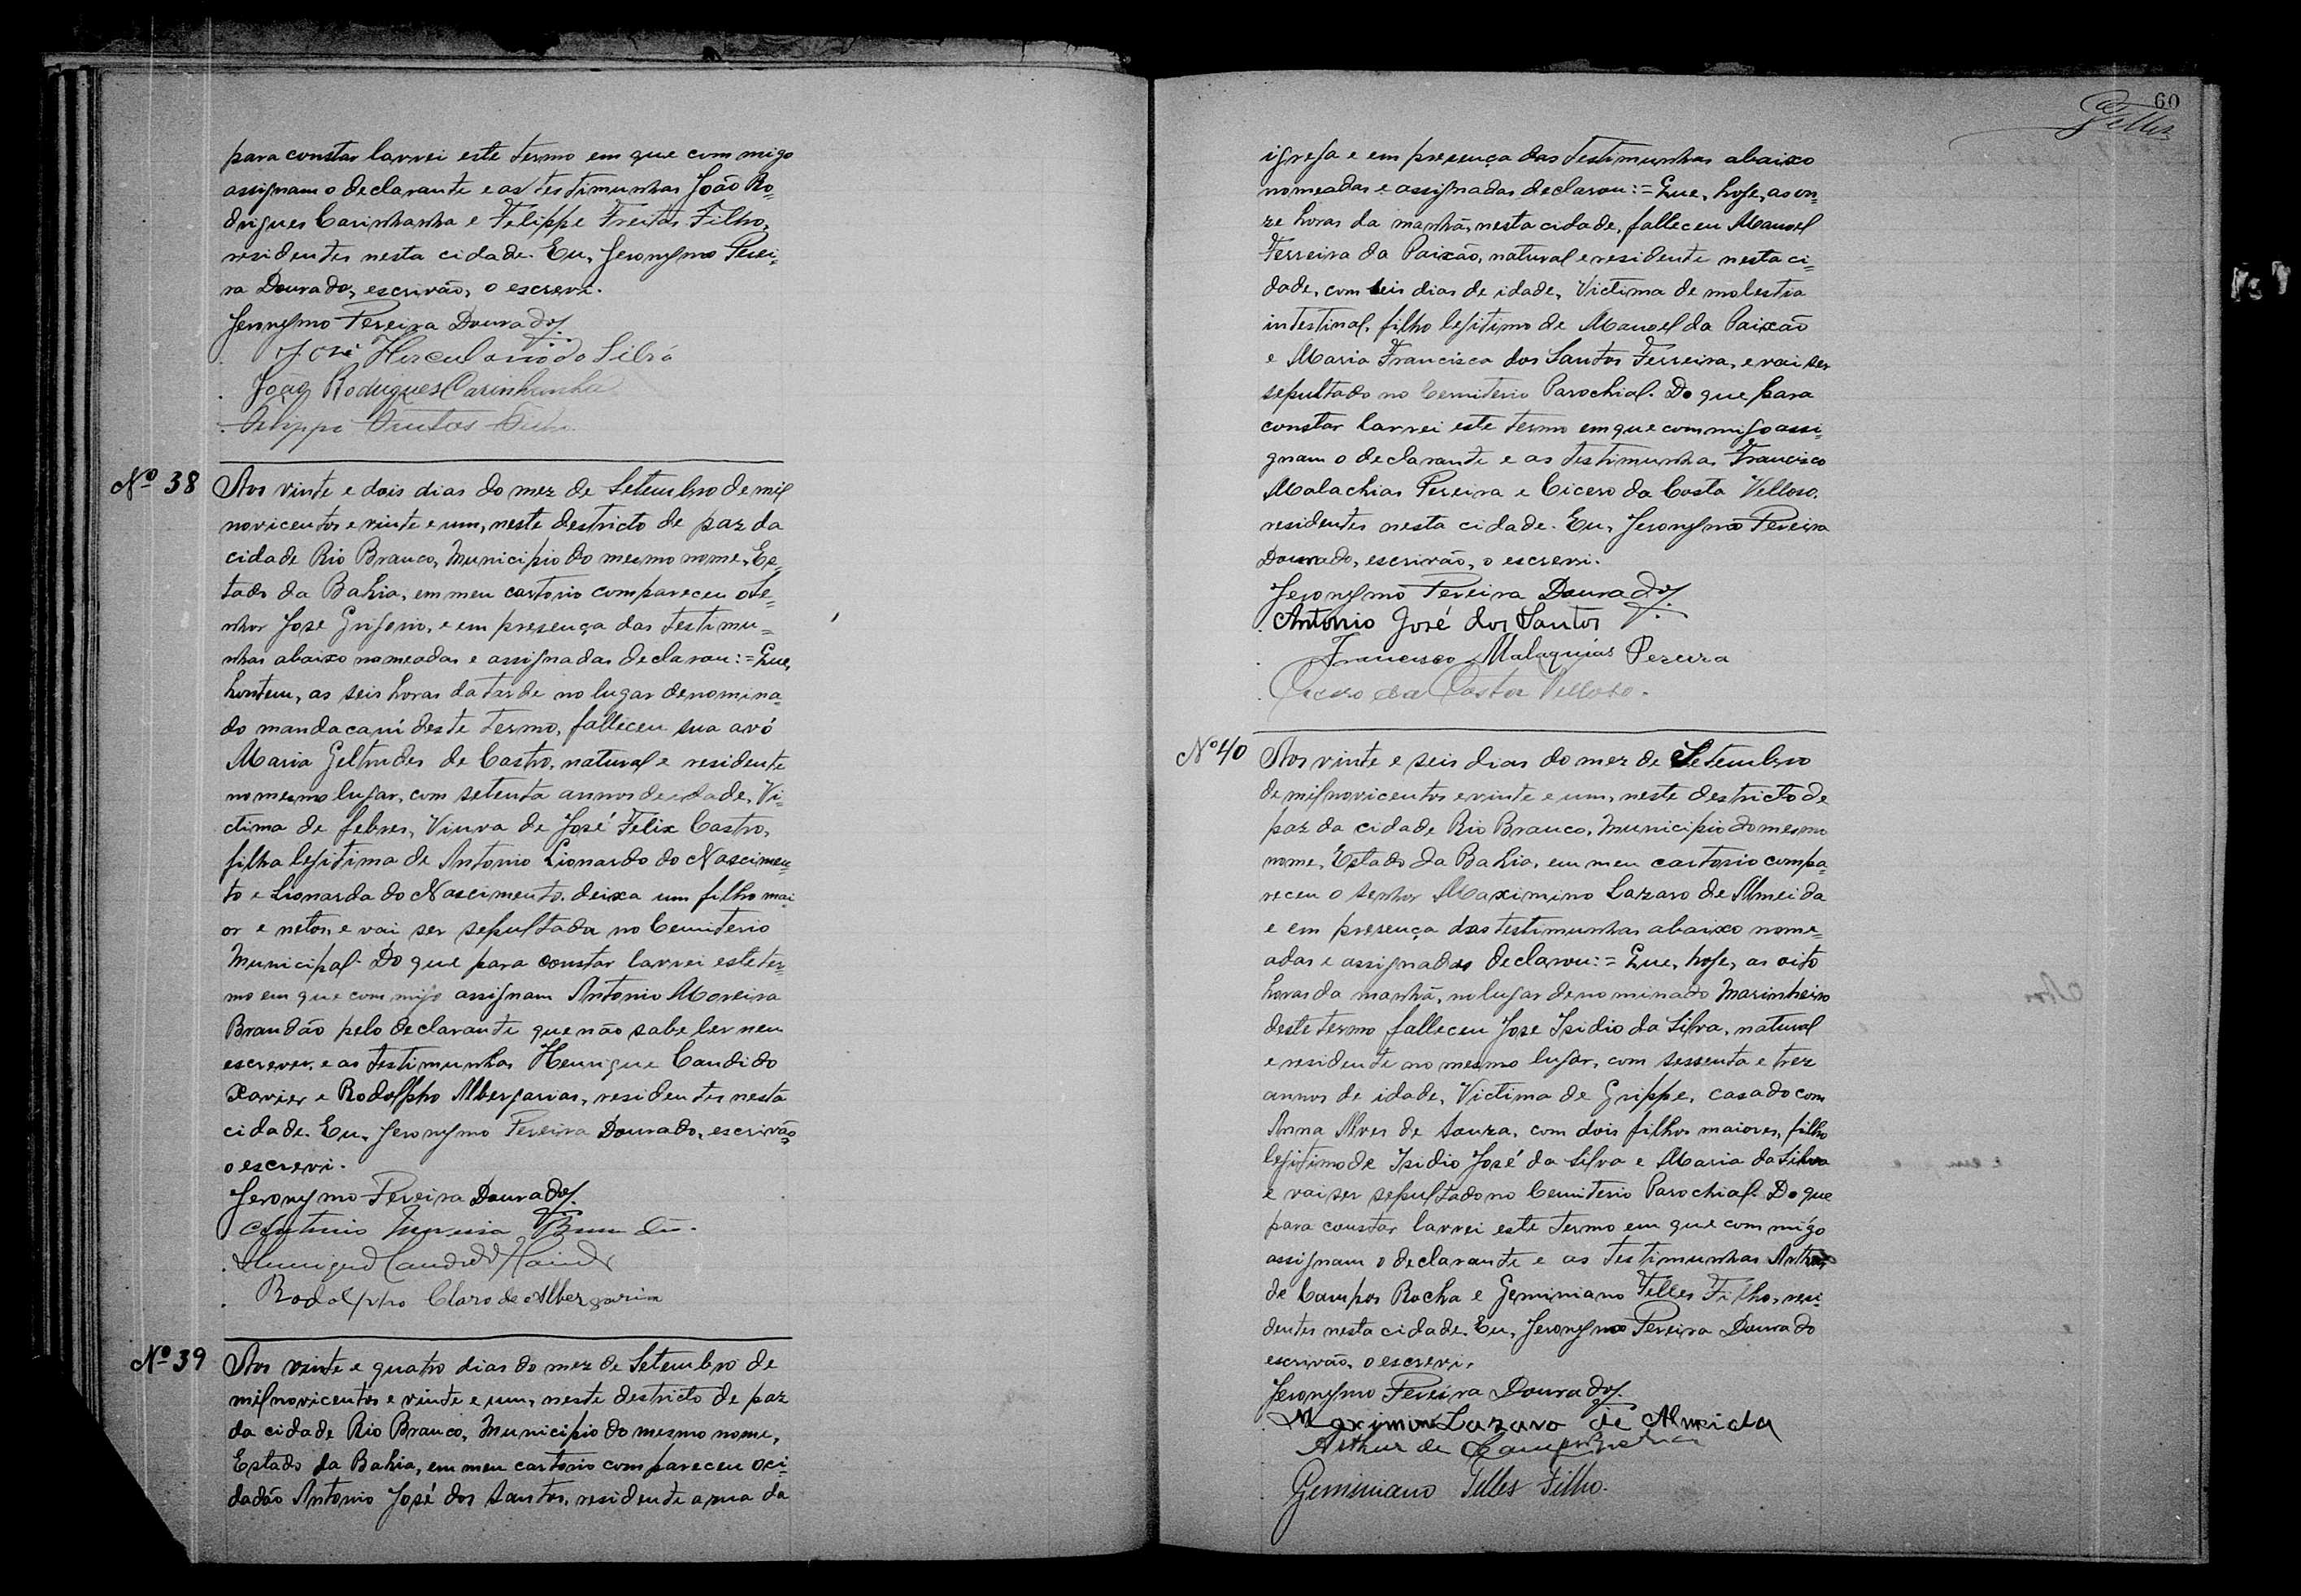 para constar lavrei este termo em que commigo
assignam o declarante e as testimunhas João Ro=
drigues Carinhanha e Felippe Freitas Filho,
residentes nesta cidade. Eu, Jeronymo Perei=
ra Dourado, escrivão, o escrevi.
Jeronymo Pereira Dourado.
José Herculano da Silva
João Rodrigues Carinhanha
Felippe Freitas Filho
Nº 38 Aos vinte e dois dias do mez de Setembro de mil
novicentos e vinte e um, neste destricto de paz da
cidade Rio Branco, Municipio do mesmo nome, Es=
tado da Bahia, em meu cartorio compareceu o Se=
nhor José Grigorio, e em presença das testimu=
nhas abaixo nomeadas e assignadas declarou:= Que,
hontem, as seis horas da tarde no lugar denomina=
do mandacarú deste termo, falleceu sua avó
Maria Geltrudes de Castro, natural e residente
no mesmo lugar, com setenta annos de idade, Vi=
ctima de febres, Viuva de José Felix Castro,
filha legitima de Antonio Lionardo do Nascimen=
to e Lionarda do Nascimento, deixa um filho mai=
or e netos, e vai ser sepultada no Cemiterio
Municipal. Do que para constar lavrei este ter=
mo em que commigo assignam Antonio Moreira
Brandão pelo declarante que não sabe ler nem
escrever, e as testimunhas Henrique Candido
Xavier e Rodolpho Albergarias, residentes nesta
cidade. Eu, Jeronymo Pereira Dourado, escrivão,
o escrevi.
Jeronymo Pereira Dourado.
Antonio Moreira Brandão.
Henrique Candido Xavier
Rodolpho Claro de Albergaria
Nº 39 Aos vinte e quatro dias do mez de Setembro de
mil novicentos e vinte e um, neste destricto de paz
da cidade Rio Branco, Municipio do mesmo nome,
Estado da Bahia, em meu cartorio compareceu o ci=
dadão Antonio José dos Santos, residente a rua da
60
Telles
igreja e em presença das testimunhas abaixo
nomeadas e assignadas declarou:= Que, hoje, as on=
ze horas da manhã, nesta cidade, falleceu Manoel
Ferreira da Paixão, natural e residente nesta ci=
dade, com seis dias de idade, Victima de molestia
intestinal, filho legitimo de Manoel da Paixão
e Maria Francisca dos Santos Ferreira, e vai ser
sepultado no Cemiterio Parochial. Do que para
constar lavrei este termo em que commigo assi=
gnam o declarante e as testimunhas Francisco
Malachias Pereira e Cicero da Costa Velloso,
residentes nesta cidade. Eu, Jeronymo Pereira
Dourado, escrivão, o escrevi.
Jeronymo Pereira Dourado.
Antonio José dos Santos
Francisco Malaquias Pereira
Cicero da Costa Velloso.
Nº 40 Aos vinte e seis dias do mez de Setembro
de mil novicentos e vinte e um, neste destricto de
paz da cidade Rio Branco, Municipio do mesmo
nome, Estado da Bahia, em meu cartorio compa=
receu o senhor Maximino Lazaro de Almeida
e em presença das testimunhas abaixo nome=
adas e assignadas declarou:= Que, hoje, as oito
horas da manhã, no lugar denominado Marinheiro
deste termo falleceu José Isidio da Silva, natural
e residente no mesmo lugar, com sessenta e trez
annos de idade, Victima de Grippe, casado com
Anna Alves de Souza, com dois filhos maiores, filho
legitimo de Isidio José da Silva e Maria da Silva
e vai ser sepultado no Cemiterio Parochial. Do que
para constar lavrei este termo em que commigo
assignam o declarante e as testimunhas Arthur
de Campos Rocha e Geminiano Telles Filho, resi=
dentes nesta cidade. Eu, Jeronymo Pereira Dourado
escrivão, o escrevi.
Jeronymo Pereira Dourado.
Maximino Lazaro de Almeida
Arthur de Campos Rocha
Geminiano Telles Filho.